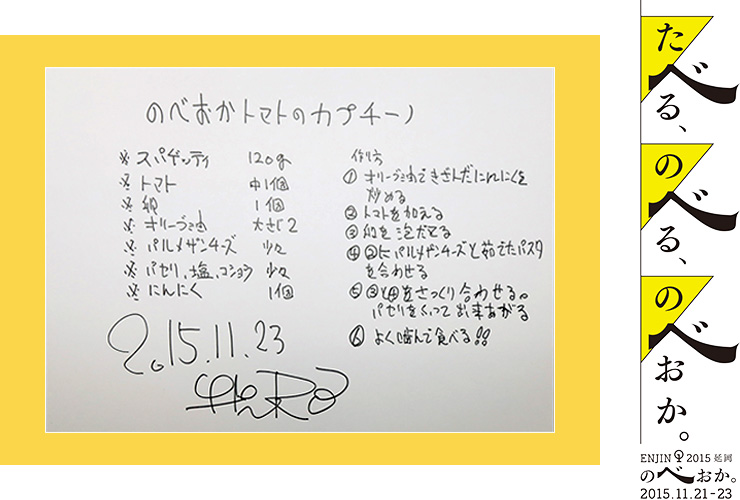 のべおかトマトのカプチーノ
※ スパゲッティ 120g
※ トマト 中1個
※ 卵 1個
※ オリーブ油 大さじ2
※ パルメザンチーズ 少々
※ パセリ、塩、コショウ 少々
※ にんにく 1個
作り方
① オリーブ油できざんだにんにくを
炒める
② トマトを加える
③ 卵を泡だてる
④ ②にパルメザンチーズと茹でたパスタ
を合わせる
⑤ ③と④をさっくり合わせる。
パセリをふって出来あがる
⑥ よく噛んで食べる!!
2015.11.23
たべる、
のべる、
のべおか。
ENJIN 2015 延岡
のべおか。
2015.11.21-23